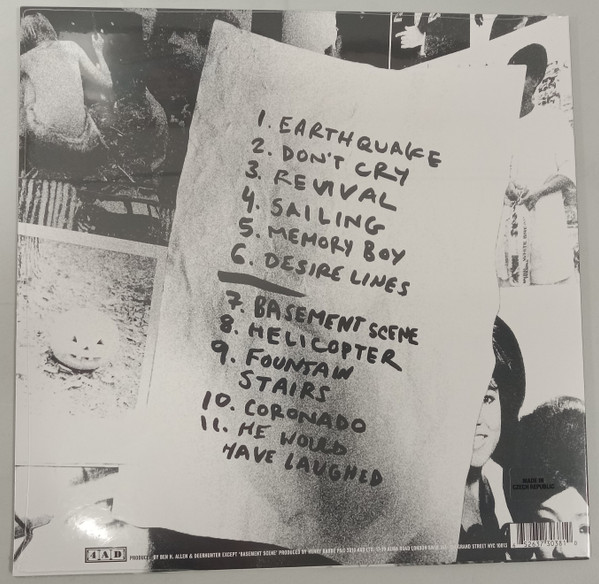 1. EARTHQUAKE
2. DON'T CRY
3. REVIVAL
4. SAILING
5. MEMORY BOY
6. DESIRE LINES
7. BASEMENT SCENE
8. HELICOPTER
9. FOUNTAIN
STAIRS
10. CORONADO
11. HE WOULD
HAVE LAUGHED
MADE IN
CZECH REPUBLIC
4AD
PRODUCED BY BEN H. ALLEN & DEERHUNTER EXCEPT "BASEMENT SCENE" PRODUCED BY